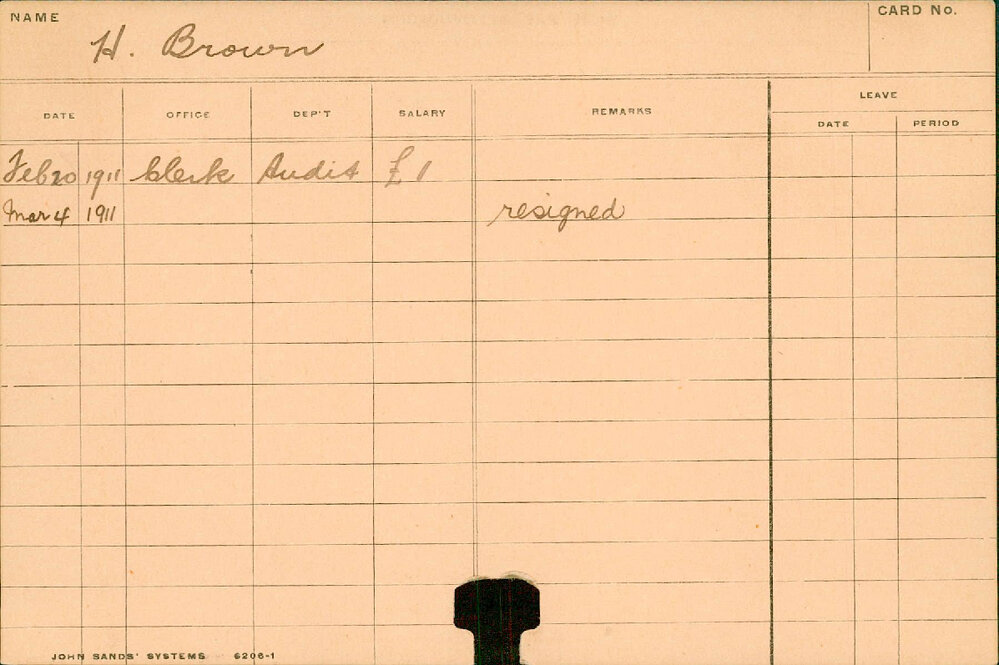 NAME
CARD No.
H. Brown
DATE OFFICE DEP'T SALARY REMARKS LEAVE
DATE PERIOD
Feb 20 1911 Clerk Audit £1
Mar 4 1911 resigned
JOHN SANDS' SYSTEMS 6206-1